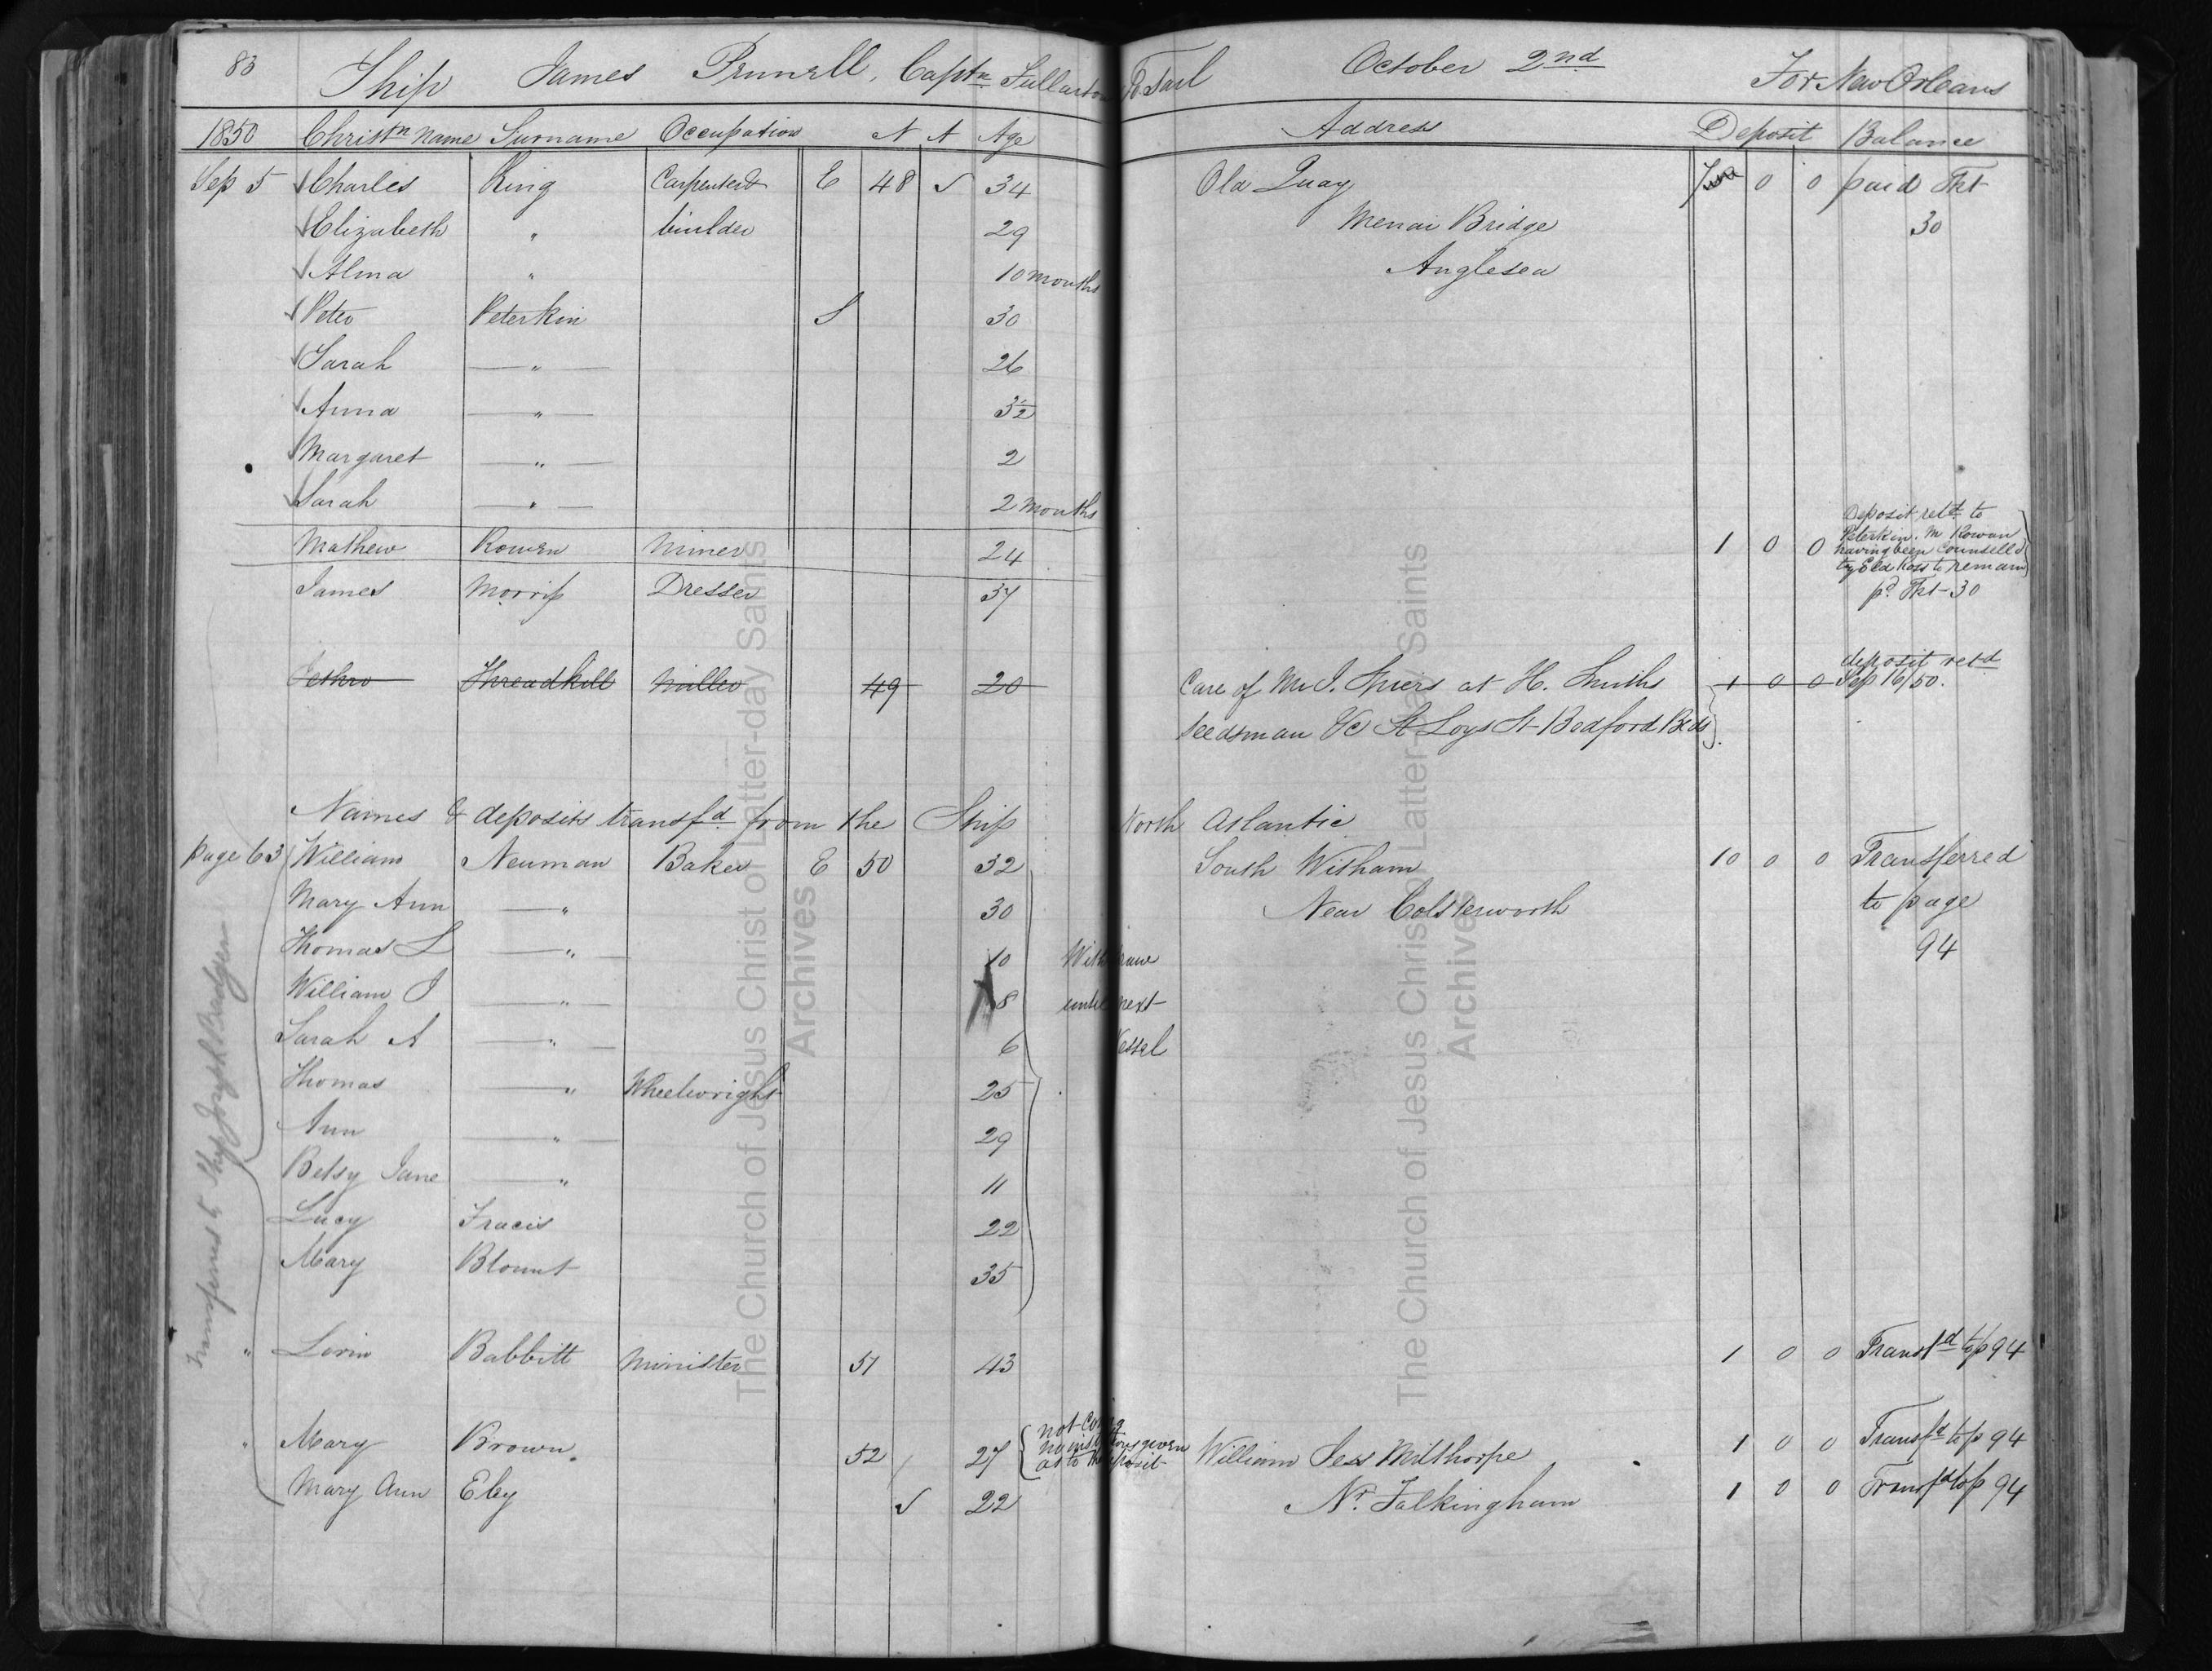 83 Ship James Pennell, Captn Fullarton To Sail October 2nd For New Orleans
1850 Christn Name Surname Occupation N A Age Address Deposit Balance
Sep 5 Charles King Carpenter & E 48 34 Old Quay 0 0 paid Tkt
Elizabeth " builder 29 Menai Bridge 30
Alma " 10 months Anglesea
Peter Peterkin S 30
Sarah " 26
Anna " 3½
Margaret " 2
Sarah " 2 months
Mathew Rowen Miner 24 1 0 0 Deposit retd to
Peterkin. M Rowan
having been Counselled
by Eld Ross to remain
James Morriss Dresser 37 pd. Tkt 30
Jethro Threadkill Miller 49 20 Care of Mr J. Spiers at H. Smiths 1 0 0 deposit retd
Sep 16/50.
Seedsman &c St Loys St Bedford Beds
Names & deposits transfd. from the Ship North Atlantic
page 63 William Neuman Baker E 50 32 South Witham 10 0 0 Transferred
Mary Ann " 30 Near Colsterworth to page
Thomas L " 10 Withdrawn 94
William J " 8 until next
Sarah A " 6 Vessel
Thomas " Wheelwright 25
Ann " 29
Betsy Jane " 11
Lucy Fracis 22
Mary Blount 35
" Lorin Babbitt Minister 51 43 1 0 0 Transfd to p 94
" Mary Brown 52 27 not Coming
no instructions given
as to the deposit William Sess Milthorpe 1 0 0 Transfd to p 94
Mary Ann Eley 22 Nr. Falkingham 1 0 0 Transfd to p 94
Transferred to Ship Joseph Badger
The Church of Jesus Christ of Latter-day Saints
Archives
The Church of Jesus Christ of Latter-day Saints
Archives